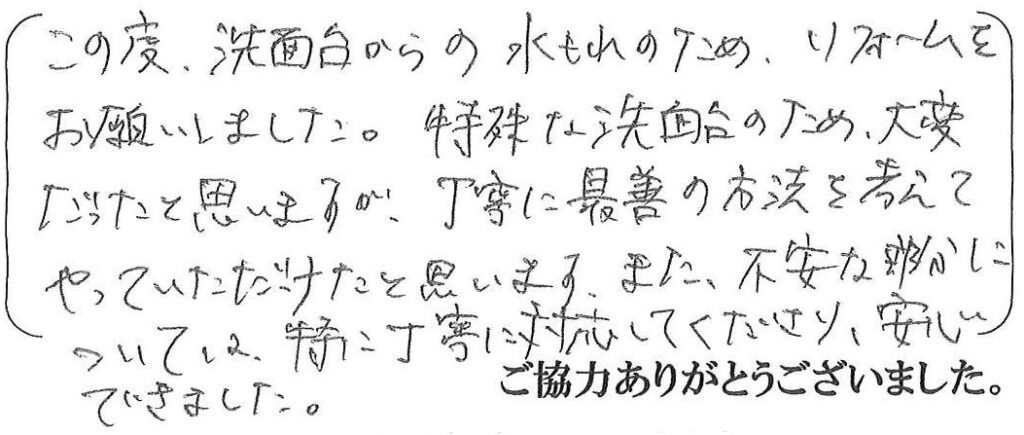 この度、洗面台からの水もれのため、リフォームを
お願いしました。特殊な洗面台のため、大変
だったと思いますが、丁寧に最善の方法を考えて
やっていただけたと思います。また、不安な部分に
ついては、特に丁寧に対応してくださり、安心
できました。
ご協力ありがとうございました。